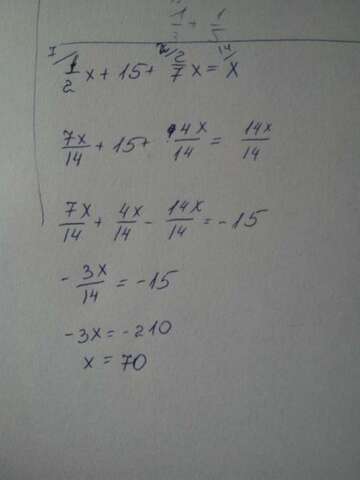 1/3 + 1/5
7/ 2/ 14/
1/2 x + 15 + 2/7 x = x
7x/14 + 15 + 4x/14 = 14x/14
7x/14 + 4x/14 - 14x/14 = -15
- 3x/14 = -15
-3x = -210
x = 70